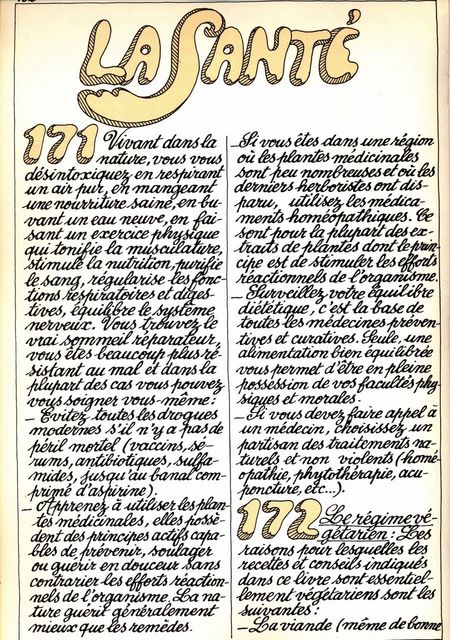 La Santé
171 Vivant dans la
nature, vous vous
désintoxiquez en respirant
un air pur, en mangeant
une nourriture saine, en bu-
vant un eau neuve, en fai-
sant un exercice physique
qui tonifie la musculature,
stimule la nutrition, purifie
le sang, régularise les fonc-
tions respiratoires et diges-
tives, équilibre le système
nerveux. Vous trouvez le
vrai sommeil réparateur,
vous êtes beaucoup plus ré-
sistant au mal et dans la
plupart des cas vous pouvez
vous soigner vous-même :
_ Evitez toutes les drogues
modernes s'il n'y a pas de
péril mortel (vaccins, sé-
rums, antibiotiques, sulfa-
mides, jusqu'au banal com-
primé d'aspirine).
_ Apprenez à utiliser les plan-
tes médicinales, elles possè-
dent des principes actifs capa-
bles de prévenir, soulager
ou guérir en douceur sans
contrarier les efforts réaction-
nels de l'organisme. La na-
ture guérit généralement
mieux que les remèdes.
_ Si vous êtes dans une région
où les plantes médicinales
sont peu nombreuses et où les
derniers herboristes ont dis-
paru, utilisez les médica-
ments homéopathiques. Ce
sont pour la plupart des ex-
traits de plantes dont le prin-
cipe est de stimuler les efforts
réactionnels de l'organisme.
_ Surveillez votre équilibre
diététique, c'est la base de
toutes les médecines préven-
tives et curatives. Seule, une
alimentation bien équilibrée
vous permet d'être en pleine
possession de vos facultés phy-
siques et morales.
_ Si vous devez faire appel à
un médecin, choisissez un
partisan des traitements na-
turels et non violents (homé-
opathie, phytothérapie, acu-
poncture, etc...).
172 Le régime vé-
gétarien : Les
raisons pour lesquelles les
recettes et conseils indiqués
dans ce livre sont essentiel-
lement végétariens sont les
suivantes :
_ La viande (même de bonne